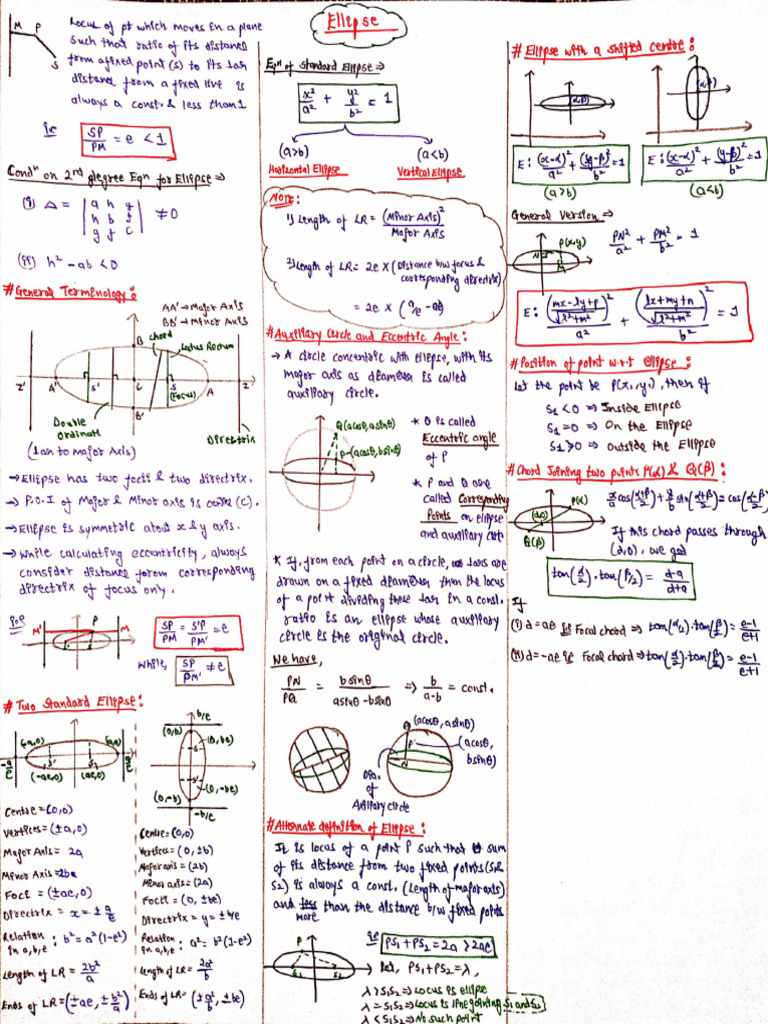 Ellipse
M P
S
Locus of pt which moves in a plane
such that ratio of its distance
from a fixed point (s) to its ⊥ar
distance from a fixed line is
always a const. & less than 1
ie SP/PM = e < 1
Condⁿ on 2nd degree Eqn for Ellipse ⇒
(i) Δ = | a h g |
| h b f | ≠ 0
| g f c |
(ii) h² - ab < 0
# General Terminology:
AA' → Major Axis
BB' → Minor Axis
chord
Latus Rectum
B
Z' A' S' C S A Z
(Focus)
B'
Double
Ordinate
Directrix
(⊥ar to Major Axis)
→ Ellipse has two focii & two directrix.
→ P.O.I of Major & Minor axis is centre (C).
→ Ellipse is symmetric about x & y axis.
→ While calculating eccentricity, always
consider distance form corresponding
directrix of focus only.
M' P M
SP/PM = S'P/PM' = e
While, SP/PM' ≠ e
# Two Standard Ellipse:
(-a,0) (a,0)
-a/e S' S a/e
(-ae,0) (ae,0)
Centre = (0,0)
Vertices = (±a,0)
Major Axis = 2a
Minor Axis = 2b
Foci = (±ae,0)
Directrix = x = ± a/e
Relation in a,b,e : b² = a²(1-e²)
Length of LR = 2b²/a
Ends of LR = (±ae, ± b²/a)
b/e
(0,b)
(0,be)
S
S'
(0,-be)
(0,-b)
-b/e
Centre = (0,0)
Vertices = (0,±b)
Major axis = (2b)
Minor axis = (2a)
Foci = (0, ±be)
Directrix = y = ± b/e
Relation in a,b,e : a² = b²(1-e²)
Length of LR = 2a²/b
Ends of LR = (± a²/b, ±be)
Eqn of Standard Ellipse ⇒
x²/a² + y²/b² = 1
(a>b) (a<b)
Horizontal Ellipse Vertical Ellipse
Note:
1) Length of LR = (Minor Axis)²/Major Axis
2) Length of LR = 2e × (Distance b/w focus & corresponding directrix)
= 2e × (a/e - ae)
# Auxillary Circle and Eccentric Angle:
→ A circle concentric with ellipse, with its
major axis as diameter is called
auxillary circle.
Q(acosθ, asinθ)
P(acosθ, bsinθ)
* θ is called
Eccentric angle
of P
* P and Q are
called Corresponding
Points on ellipse
and auxillary
* If, from each point on a circle, ⊥ars are
drawn on a fixed diameter then the locus
of a point dividing these ⊥ar in a const.
ratio is an ellipse whose auxillary
circle is the original circle.
We have,
PN/PQ = bsinθ/(asinθ-bsinθ) ⇒ b/(a-b) = const.
Q (acosθ, asinθ)
P (acosθ, bsinθ)
N
Dia. of
Axillary circle
# Alternate definition of Ellipse:
It is locus of a point P such that sum
of its distance from two fixed points (S₁ &
S₂) is always a const. (Length of major axis)
and less than the distance b/w fixed points
more
P
S₁ S₂
ie PS₁ + PS₂ = 2a > 2ae
Let, PS₁ + PS₂ = λ,
λ > S₁S₂ ⇒ Locus is ellipse
λ = S₁S₂ ⇒ Locus is line joining S₁ and S₂
λ < S₁S₂ ⇒ No such point
# Ellipse with a shifted centre:
(α,β)
(α,β)
E: (x-α)²/a² + (y-β)²/b² = 1
(a>b)
E: (x-α)²/a² + (y-β)²/b² = 1
(a<b)
General Version ⇒
N P(x,y)
M
PN²/a² + PM²/b² = 1
E: ((mx-ly+p)/√(l²+m²))²/a² + ((lx+my+n)/√(l²+m²))²/b² = 1
# Position of point w.r.t ellipse:
Let the point be P(x₁,y₁), then if
S₁ < 0 ⇒ Inside Ellipse
S₁ = 0 ⇒ On the Ellipse
S₁ > 0 ⇒ outside the Ellipse
# Chord Joining two points P(α) & Q(β):
P(α)
(d,0)
Q(β)
x/a cos(α+β/2) + y/b sin(α+β/2) = cos(α-β/2)
If this chord passes through
(d,0), we get
tan(α/2).tan(β/2) = d-a/d+a
If
(i) d = ae ie Focal chord ⇒ tan(α/2).tan(β/2) = e-1/e+1
(ii) d = -ae ie Focal chord ⇒ tan(α/2).tan(β/2) = e-1/e+1